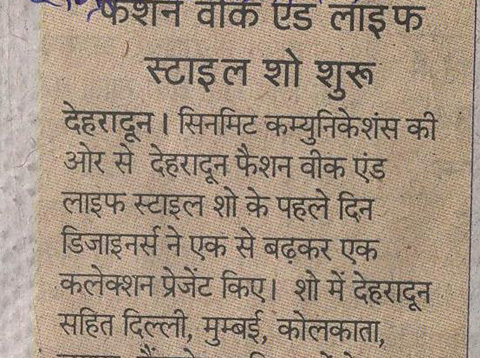 फैशन वीक एंड लाइफ
स्टाइल शो शुरू
देहरादून। सिनमिट कम्युनिकेशंस की
ओर से देहरादून फैशन वीक एंड
लाइफ स्टाइल शो के पहले दिन
डिजाइनर्स ने एक से बढ़कर एक
कलेक्शन प्रेजेंट किए। शो में देहरादून
सहित दिल्ली, मुम्बई, कोलकाता,